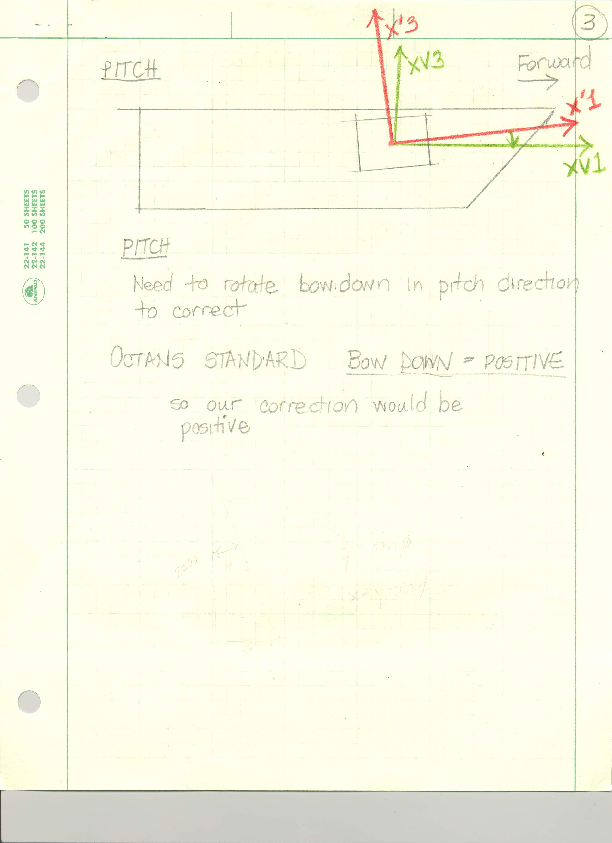 3
X'3
XV3
PITCH
Forward
X'1
XV1
22-141 50 SHEETS
22-142 100 SHEETS
22-144 200 SHEETS
PITCH
Need to rotate bow down in pitch direction
to correct
OCTANS STANDARD BOW DOWN = POSITIVE
so our correction would be
positive